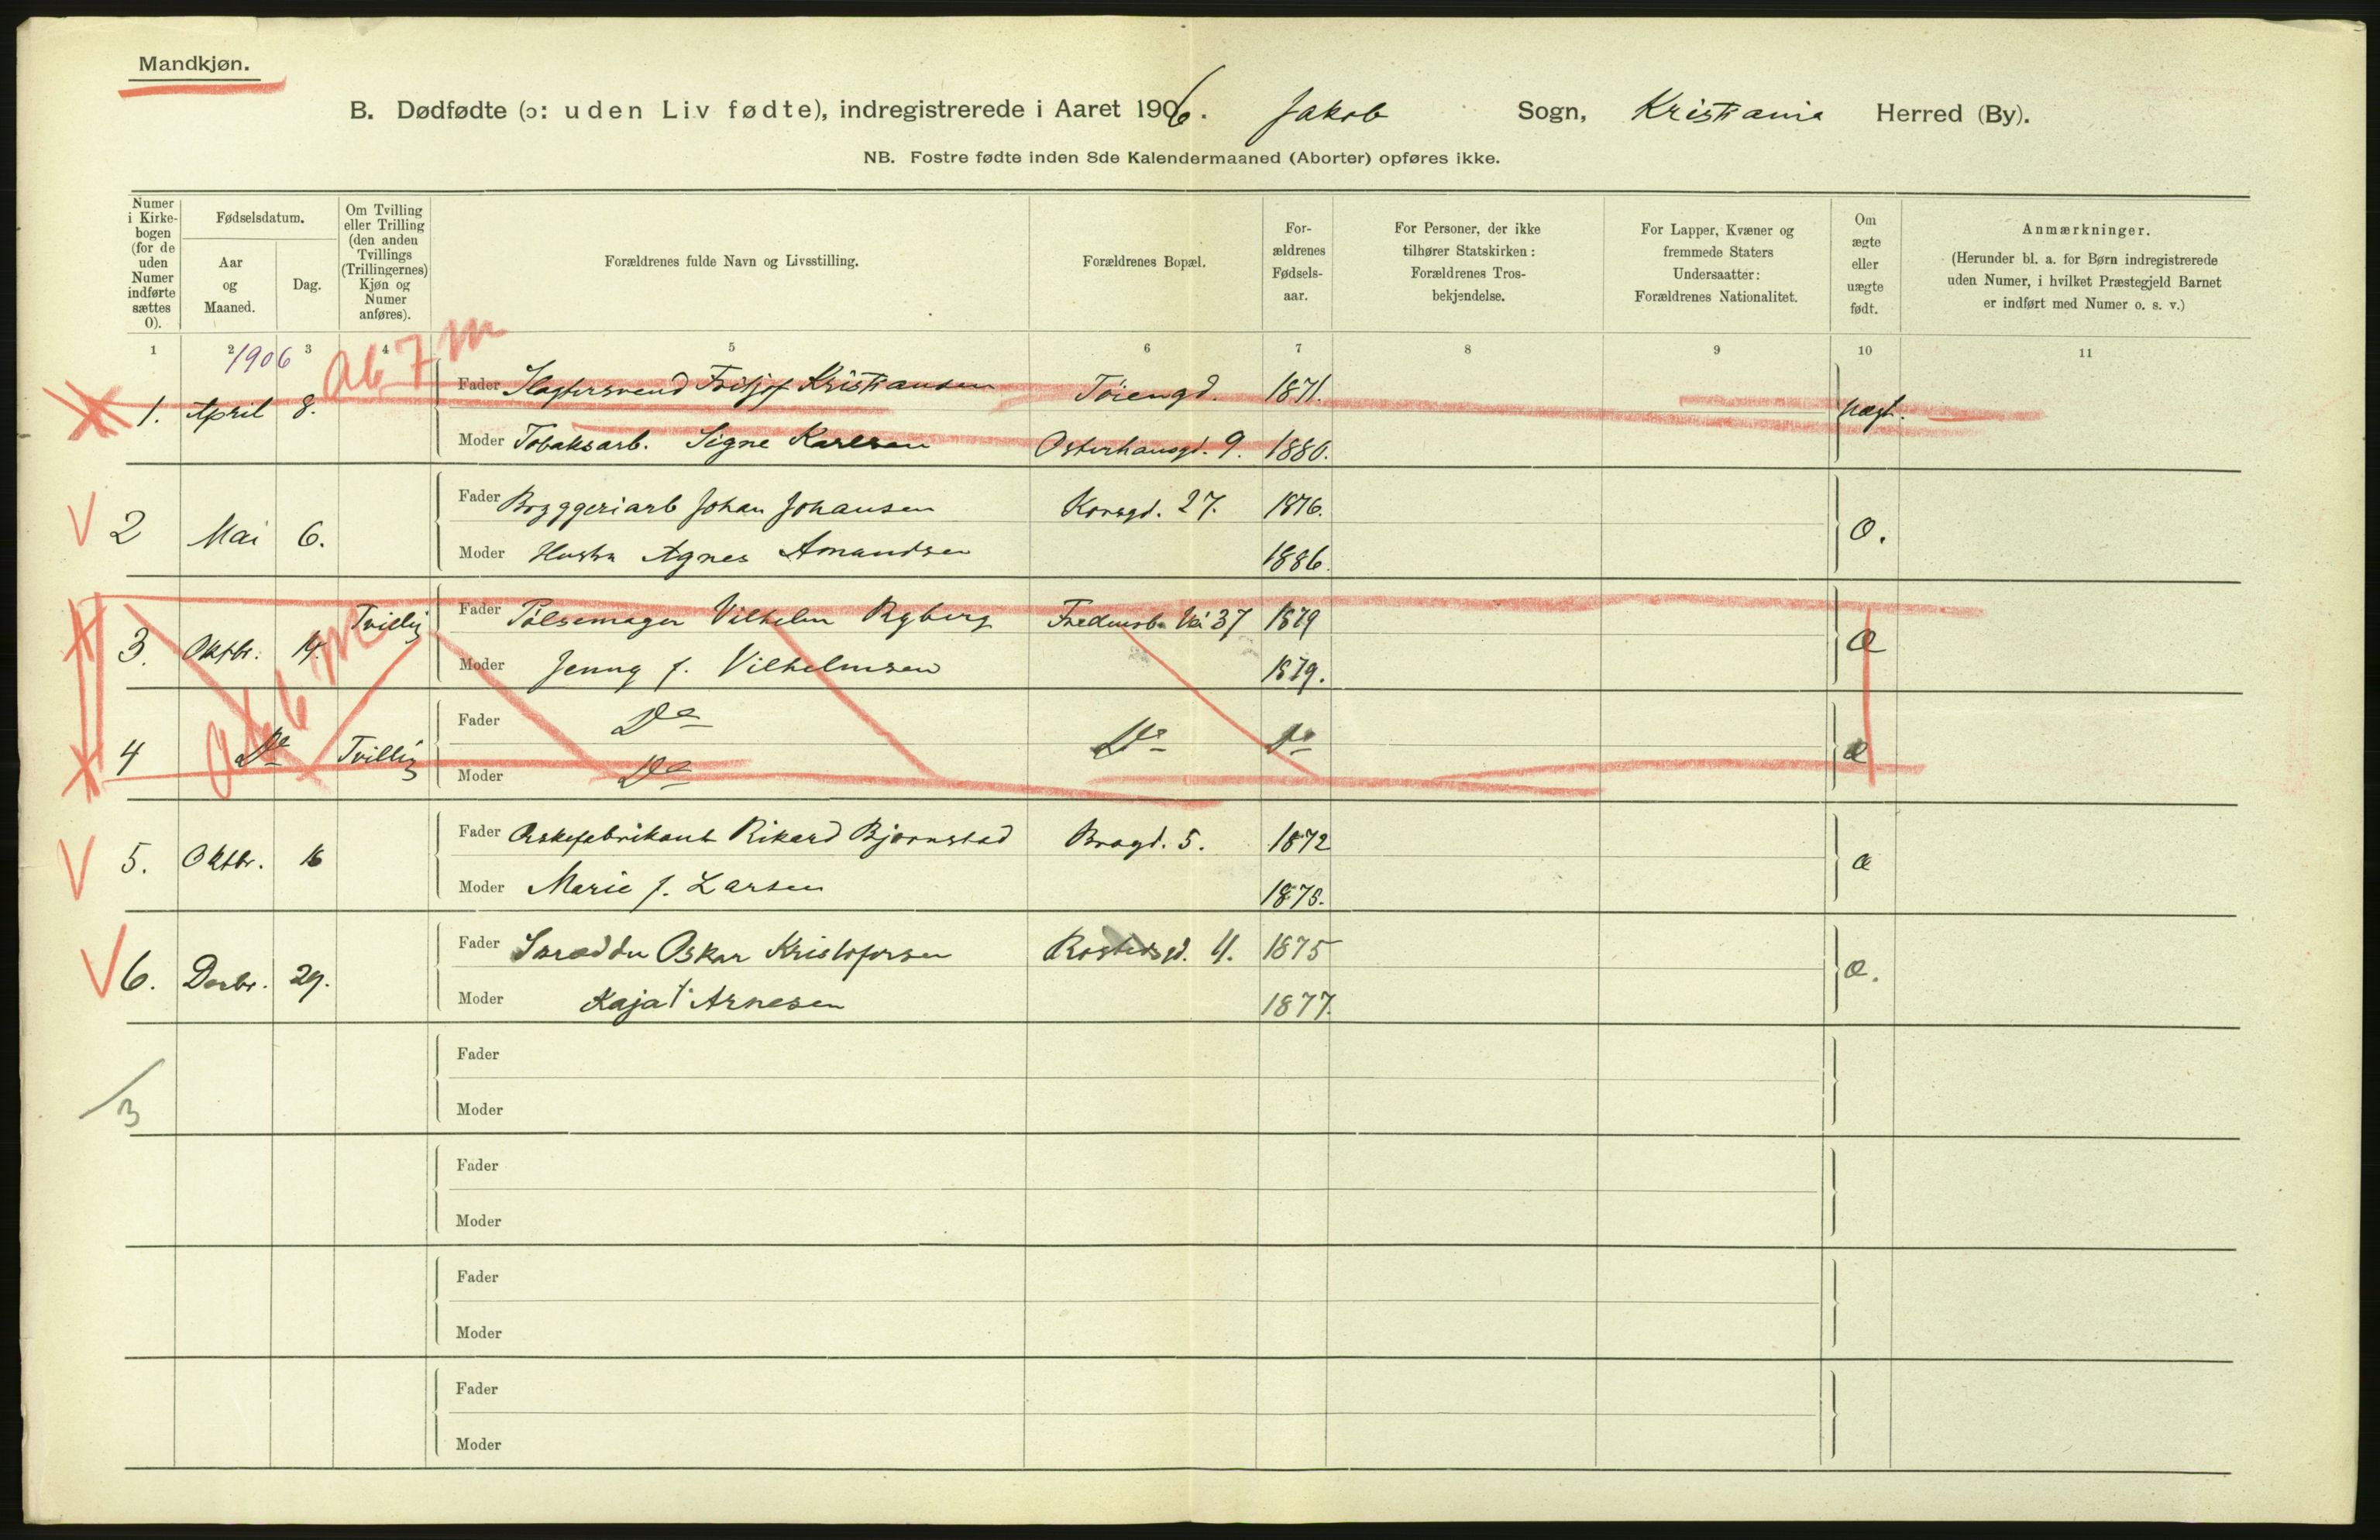 Mandkjøn.
B. Dødfødte (ɔ: uden Liv fødte), indregistrerede i Aaret 1906. Jakob Sogn, Kristiania Herred (By).
NB. Fostre fødte inden 8de Kalendermaaned (Aborter) opføres ikke.
Numer i Kirkebogen (for de uden Numer indførte sættes 0).
Fødselsdatum.
Aar og Maaned.
Dag.
Om Tvilling eller Trilling (den anden Tvillings (Trillingernes) Kjøn og Numer anføres).
Forældrenes fulde Navn og Livsstilling.
Forældrenes Bopæl.
For-ældrenes Fødsels-aar.
For Personer, der ikke tilhører Statskirken: Forældrenes Tros-bekjendelse.
For Lapper, Kvæner og fremmede Staters Undersaatter: Forældrenes Nationalitet.
Om ægte eller uægte født.
Anmærkninger.
(Herunder bl. a. for Børn indregistrerede uden Numer, i hvilket Præstegjeld Barnet er indført med Numer o. s. v.)
1 2 3 4 5 6 7 8 9 10 11
1906
ab 7 m
1. April 8. Fader Slagtersvend Fritjof Kristiansen Töiengd. 1871. uægt.
Moder Tobaksarb. Signe Karlsen Osterhausgd. 9. 1880.
2 Mai 6. Fader Bryggeriarb Johan Johansen Korsgd. 27. 1876. æ.
Moder Hustru Agnes Amandsen 1886.
3. Oktbr. 14. Tvillig Fader Pölsemager Vilhelm Ryberg Fredensb. Vei 37 1879 æ
Moder Jenny f. Vilhelmsen 1879.
ab 6 m
4 Do Tvillig Fader Do Do Do æ
Moder Do
5. Oktbr. 16 Fader Æskefabrikant Rikard Bjørnstad Bragd. 5. 1872 æ
Moder Marie f. Larsen 1875.
6. Decbr. 29. Fader Oskar Kristofersen Rostedsgd. 4. 1875 æ.
Moder Kaja f. Arnesen 1877.
3
Fader
Moder
Fader
Moder
Fader
Moder
Fader
Moder